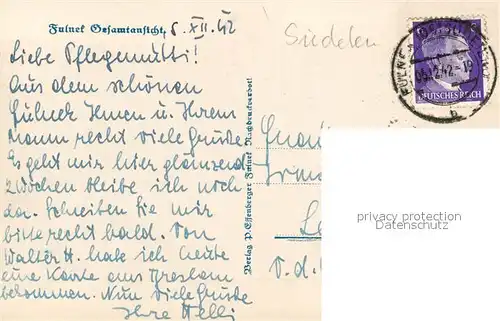 Fulnek Gesamtansicht.
5.XII.42
Liebe Pflegemutti!
Aus dem schönen
Fulnek Ihnen u. Ihrem
Mann recht viele Grüße
Es geht mir hier glänzend
2 Wochen bleibe ich noch
da. Schreiben Sie mir
bitte recht bald. Von
Walter H. habe ich heute
eine Karte aus Breslau
bekommen. Nun viele Grüße
Ihre Helli
Verlag P. Essenberger Fulnek Nachdruck verboten!
Sudeten
DEUTSCHES REICH
b
privacy protection
Datenschutz